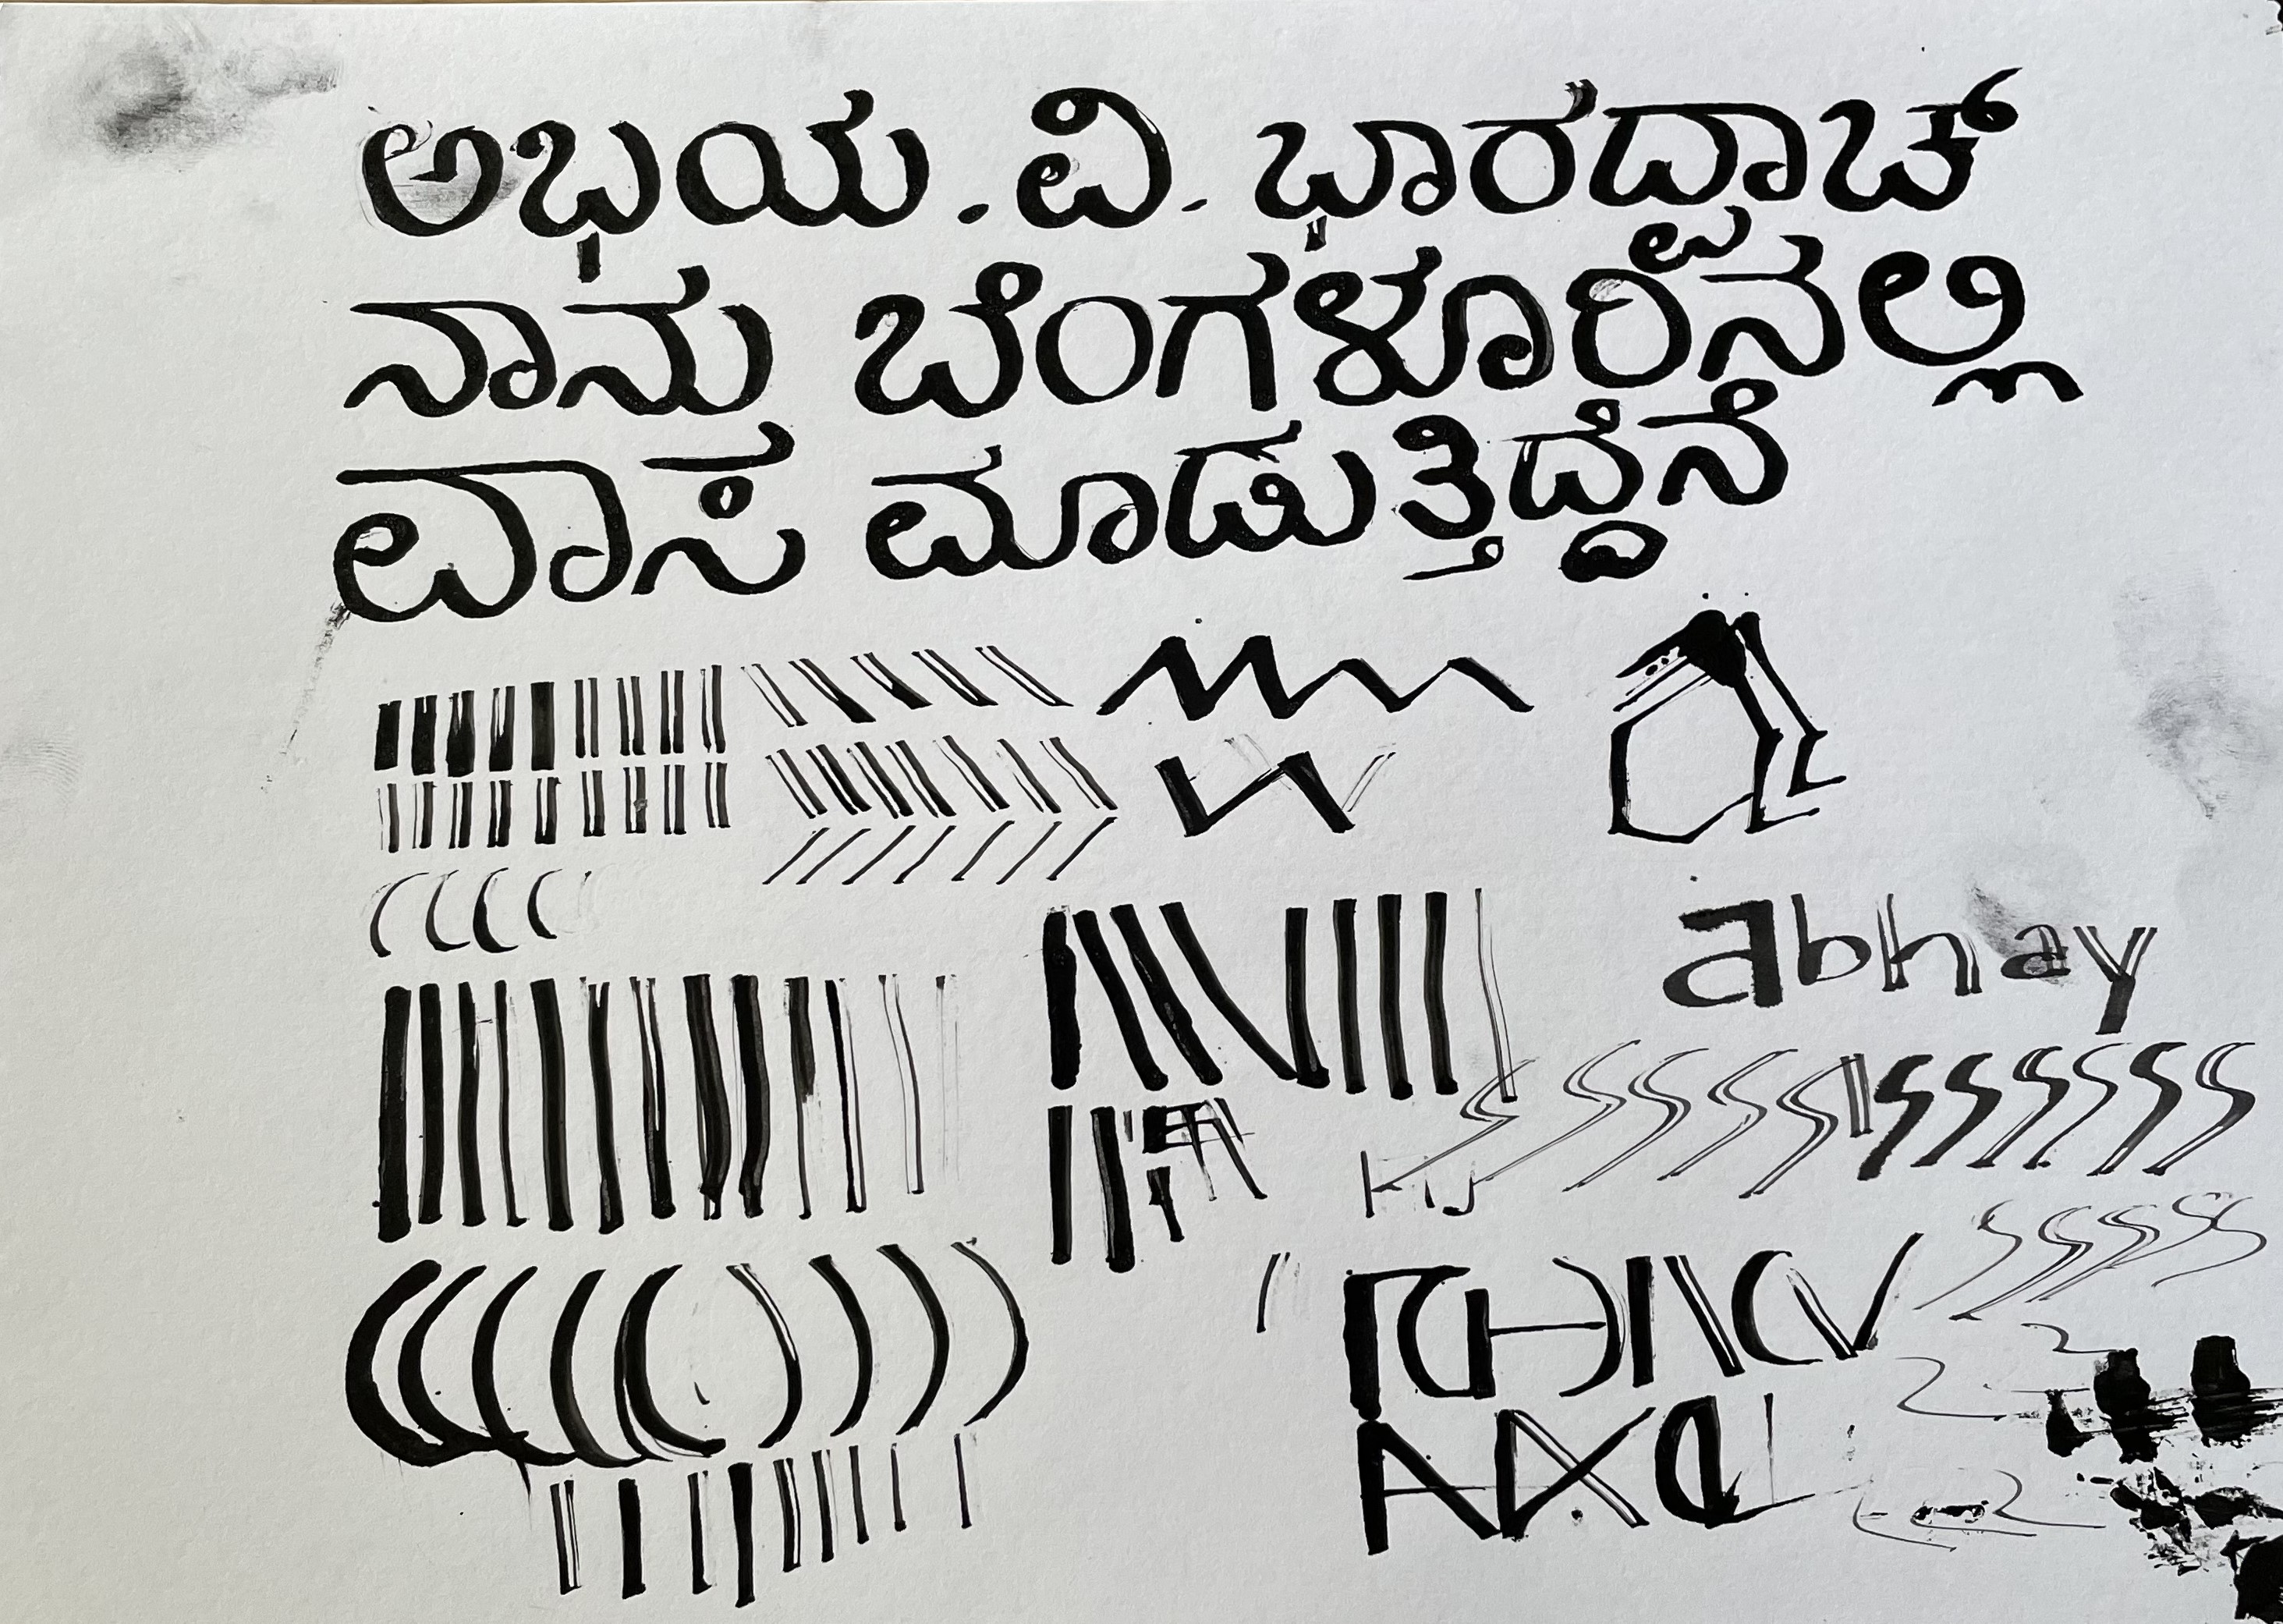 ಅಭಯ . ವಿ . ಭಾರದ್ವಾಜ್
ನಾನು ಬೆಂಗಳೂರಿನಲ್ಲಿ
ವಾಸ ಮಾಡುತ್ತಿದ್ದೆನೆ
abhay